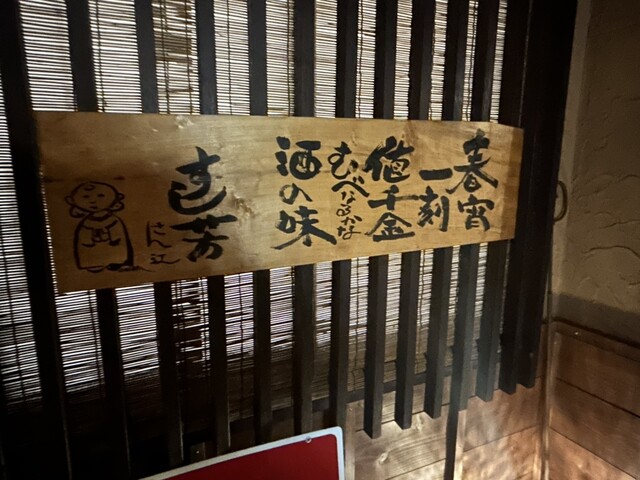 春宵
一刻
値千金
むべなるかな
酒の味
すし芳
にん江